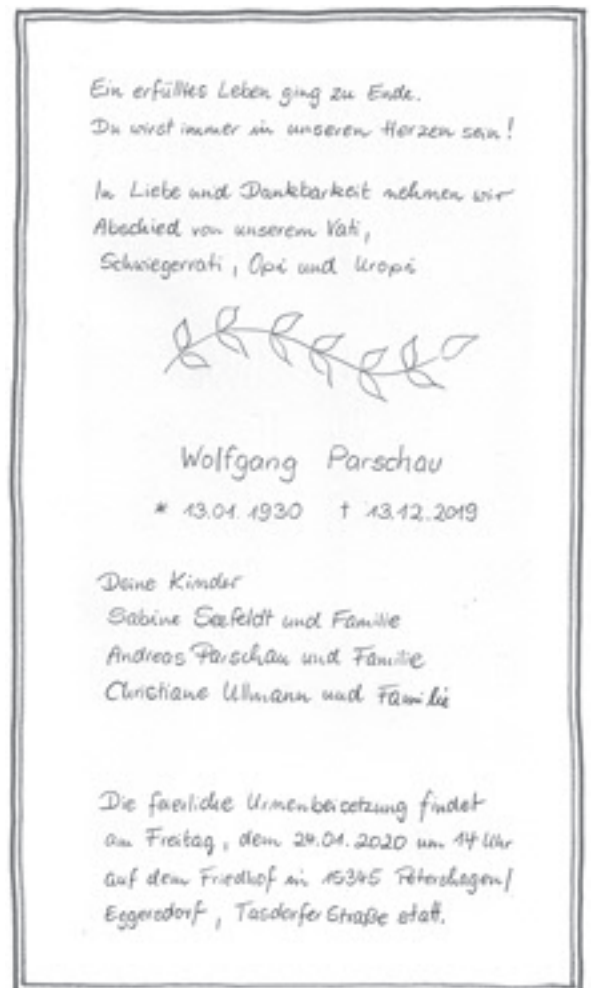 Ein erfülltes Leben ging zu Ende.
Du wirst immer in unseren Herzen sein!
In Liebe und Dankbarkeit nehmen wir
Abschied von unserem Vati,
Schwiegervati, Opi und Uropi
Wolfgang Parschau
* 13.01.1930 † 13.12.2019
Deine Kinder
Sabine Seefeldt und Familie
Andreas Parschau und Familie
Christiane Ullmann und Familie
Die feierliche Urnenbeisetzung findet
am Freitag, dem 24.01.2020 um 14 Uhr
auf dem Friedhof in 15345 Petershagen/
Eggersdorf, Tasdorfer Straße statt.